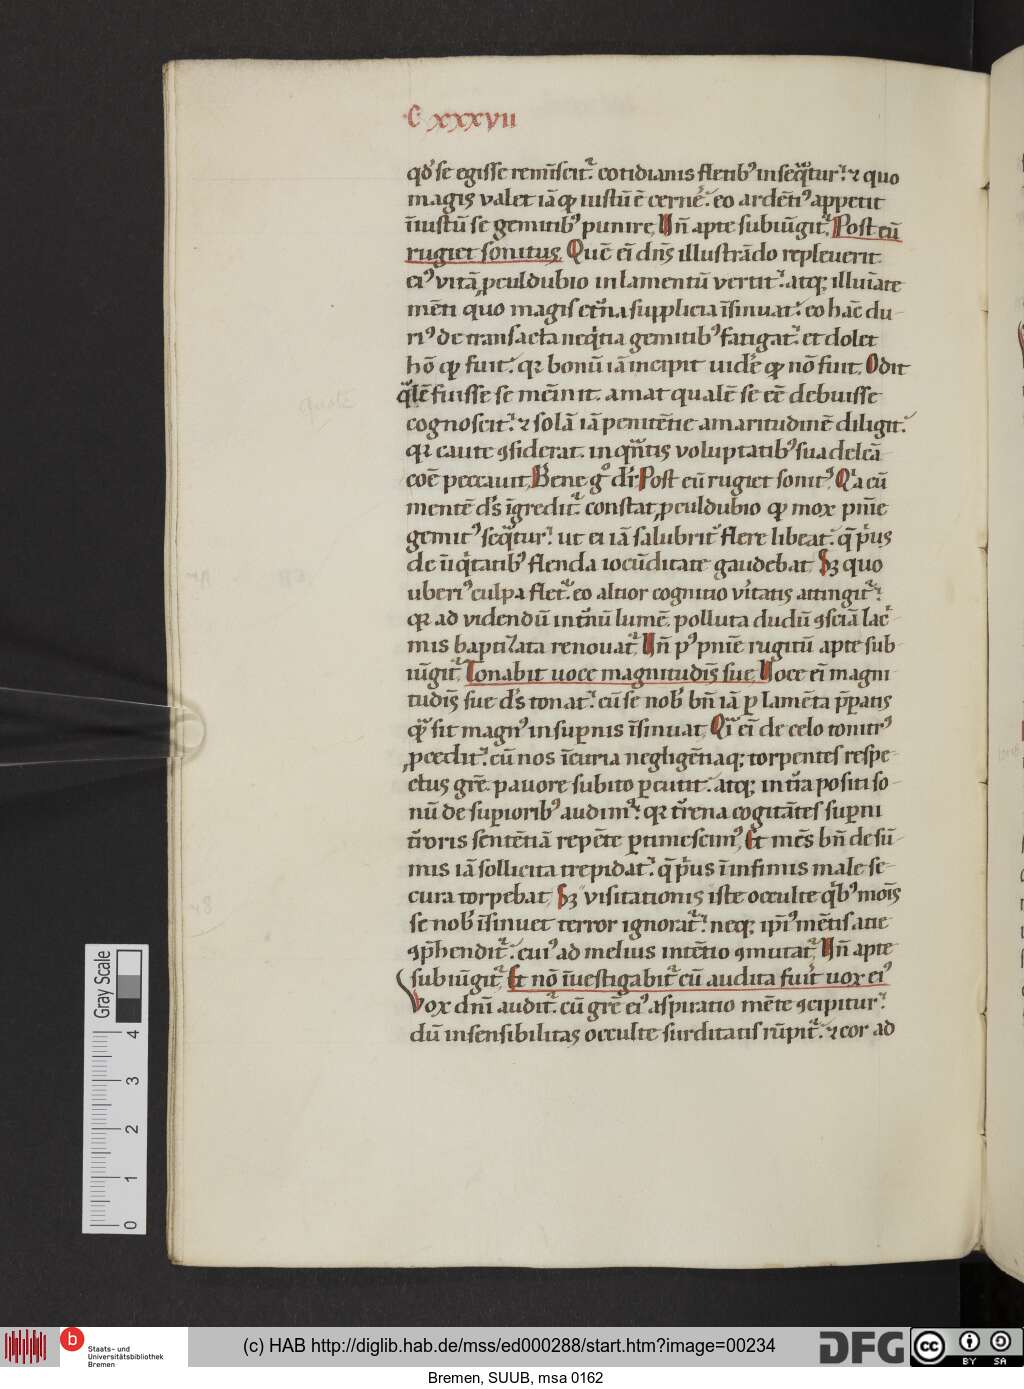 C xxxvii
qd᷒ se egisse reminiscit᷑. cotidianis fletib᷒ inseq̃tur. ⁊ quo
magis valet iā qp iustū ē cerne᷑. eo ardēti᷒ appetit
iīustū se gemitib᷒ punire. Vn̄ apte subiūgit᷑. Post eū
rugiet sonitus. Quē ei̅ dn̄s illustrādo repleuerit
ei᷒ vitā ꝓculdubio in lamentū vertit. atq; illuīate
mēti quo magis et̄na supplicia īsinuat. eo hāc du-
ri᷒ de transacta neq̇tia gemitib᷒ fatigat. et dolet
hō qp fuit. qꝛ bonū iā incipit uide᷑ qp nō fuit. Odit
q̄lē fuisse se mēinit. amat qualē se eē debuisse
cognoscit. ⁊ solā iā penitētie amaritudinē diligit.
qꝛ caute ꝯsiderat. in q̄ntis voluptatib᷒ sua delcā-
coē peccauit. Bene gͦ dr̄. Post eū rugiet sonit᷒. Qꝛ a cū
mentē dš īgredit᷑. constat ꝓculdubio qp mox pn̄ie
gemit᷒ seq̄tur. ut ei iā salubrit᷑ flere libeat. q̄ pͥus
de iniq̇tatib᷒ flenda iocūditate gaudebat. Sꝫ quo
uberi᷒ culpa flet᷑. eo altior cognitio vītatis attingit᷑.
qꝛ ad videndū int̄nū lumē. polluta dudū ꝯsciā lac̄-
mis baptizata renouat᷑. Vn̄ p᷒ pn̄ie rugitū apte sub-
iūgit᷑. Tonabit uoce magnitudīs sue. Voce ei̅ magni
tudīs sue dš tonat. cū se nob᷒ bn̄ iā ꝑ lamēta p̄ꝑatis
q̄m sit magn᷒ in suꝑnis īsinuat. Qi̅ ei̅ de celo tonitr᷒
ꝓcedit. cū nos īcuria negligētiaq; torpentes respe-
ctus gr̄e. pauore subito ꝑcutit. atq; in t̄ra positi so-
nū de suꝑiorib᷒ audim᷒. qꝛ t̄rena cogitātes suꝑni
t̄roris sentētiā repēte ꝑtimescim᷒. Et mēs bn̄ de sū-
mis iā sollicita trepidat. q̄ pͥus ī infimis male se-
cura torpebat. Sꝫ visitationis iste occulte q̇b᷒ mōis
se nob᷒ īsinuet terror ignorat᷑. neq; ipi᷒ mētis acie
ꝯp̄hendit᷑. cui᷒ ad melius intētio ꝯmutat᷑. Vn̄ apte
subiūgit᷑. Et nō īuestigabit᷑ cū audita fuīt uox ei᷒
Vox dn̄i audit᷑. cū gr̄e ei᷒ aspiratio mēte ꝯcipitur.
dū insensibilitas occulte surditatis rūpit᷑. ⁊ cor ad
Gray Scale
4
3
2
1
0
b
Staats- und
Universitätsbibliothek
Bremen
(c) HAB http://diglib.hab.de/mss/ed000288/start.htm?image=00234
DFG
cc
BY SA
Bremen, SUUB, msa 0162